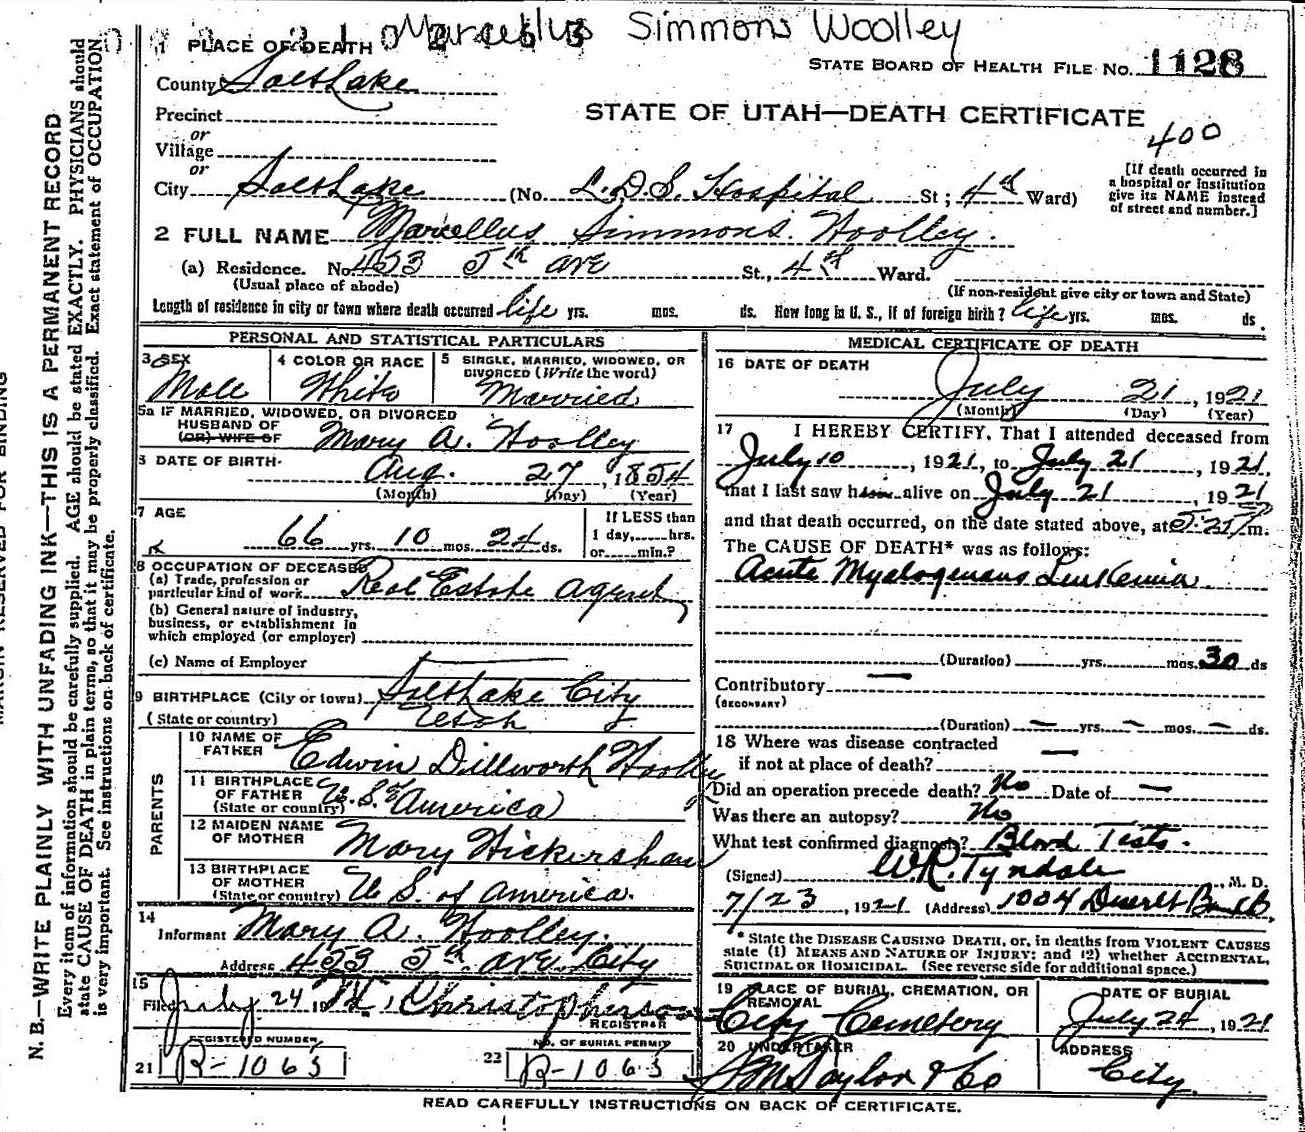 Marcellus Simmons Woolley
1 PLACE OF DEATH
STATE BOARD OF HEALTH FILE NO. 1128
County Salt Lake
STATE OF UTAH—DEATH CERTIFICATE
Precinct
400
or
Village
or
City Salt Lake (No. L.D.S. Hospital St; 4th Ward)
[If death occurred in a hospital or institution give its NAME instead of street and number.]
2 FULL NAME Marcellus Simmons Woolley.
(a) Residence. No. 453 5th ave St., 4th Ward.
(Usual place of abode) (If non-resident give city or town and State)
Length of residence in city or town where death occurred life yrs. mos. ds. How long in U. S., if of foreign birth? life yrs. mos. ds.
PERSONAL AND STATISTICAL PARTICULARS
3 SEX Male
4 COLOR OR RACE White
5 SINGLE, MARRIED, WIDOWED, OR DIVORCED (Write the word) Married
5a IF MARRIED, WIDOWED, OR DIVORCED
HUSBAND OF
(OR) WIFE OF Mary A. Woolley
DATE OF BIRTH Aug. 27, 1854
(Month) (Day) (Year)
7 AGE 66 yrs. 10 mos. 24 ds.
If LESS than
1 day, hrs.
or min.?
8 OCCUPATION OF DECEASED
(a) Trade, profession or
particular kind of work Real Estate agent
(b) General nature of industry,
business, or establishment in
which employed (or employer)
(c) Name of Employer
9 BIRTHPLACE (City or town) Salt Lake City
(State or country) Utah
PARENTS
10 NAME OF FATHER Edwin Dillworth Woolley
11 BIRTHPLACE OF FATHER (State or country) U.S. of America
12 MAIDEN NAME OF MOTHER Mary Wickersham
13 BIRTHPLACE OF MOTHER (State or country) U S. of America.
14
Informant Mary A. Woolley.
Address 453 5th ave City
15
Filed July 24 19
Christopherson
REGISTRAR
REGISTERED NUMBER
21 R-1065
NO. OF BURIAL PERMIT
22 R-1065
MEDICAL CERTIFICATE OF DEATH
16 DATE OF DEATH
July 21, 1921
(Month) (Day) (Year)
17 I HEREBY CERTIFY, That I attended deceased from
July 10, 1921, to July 21, 1921.
that I last saw him alive on July 21 1921
and that death occurred, on the date stated above, at m.
The CAUSE OF DEATH* was as follows:
Acute Myelogenous Leukemia
(Duration) yrs. mos. 30 ds
Contributory —
(SECONDARY)
(Duration) — yrs. — mos. — ds.
18 Where was disease contracted
if not at place of death? —
Did an operation precede death? No Date of —
Was there an autopsy? No
What test confirmed diagnosis? Blood Tests.
(Signed) W.R. Tyndale, M. D.
7/23, 1921 (Address) 1004 Deseret Bank B.
* State the DISEASE CAUSING DEATH, or, in deaths from VIOLENT CAUSES
state (1) MEANS AND NATURE OF INJURY; and (2) whether ACCIDENTAL,
SUICIDAL OR HOMICIDAL. (See reverse side for additional space.)
19 PLACE OF BURIAL, CREMATION, OR REMOVAL
City Cemetery
DATE OF BURIAL
July 24, 1921
20 UNDERTAKER
S M Taylor & Co
ADDRESS
City.
READ CAREFULLY INSTRUCTIONS ON BACK OF CERTIFICATE.
MARGIN RESERVED FOR BINDING
N. B.—WRITE PLAINLY WITH UNFADING INK—THIS IS A PERMANENT RECORD
Every item of information should be carefully supplied. AGE should be stated EXACTLY. PHYSICIANS should
state CAUSE OF DEATH in plain terms, so that it may be properly classified. Exact statement of OCCUPATION
is very important. See instructions on back of certificate.